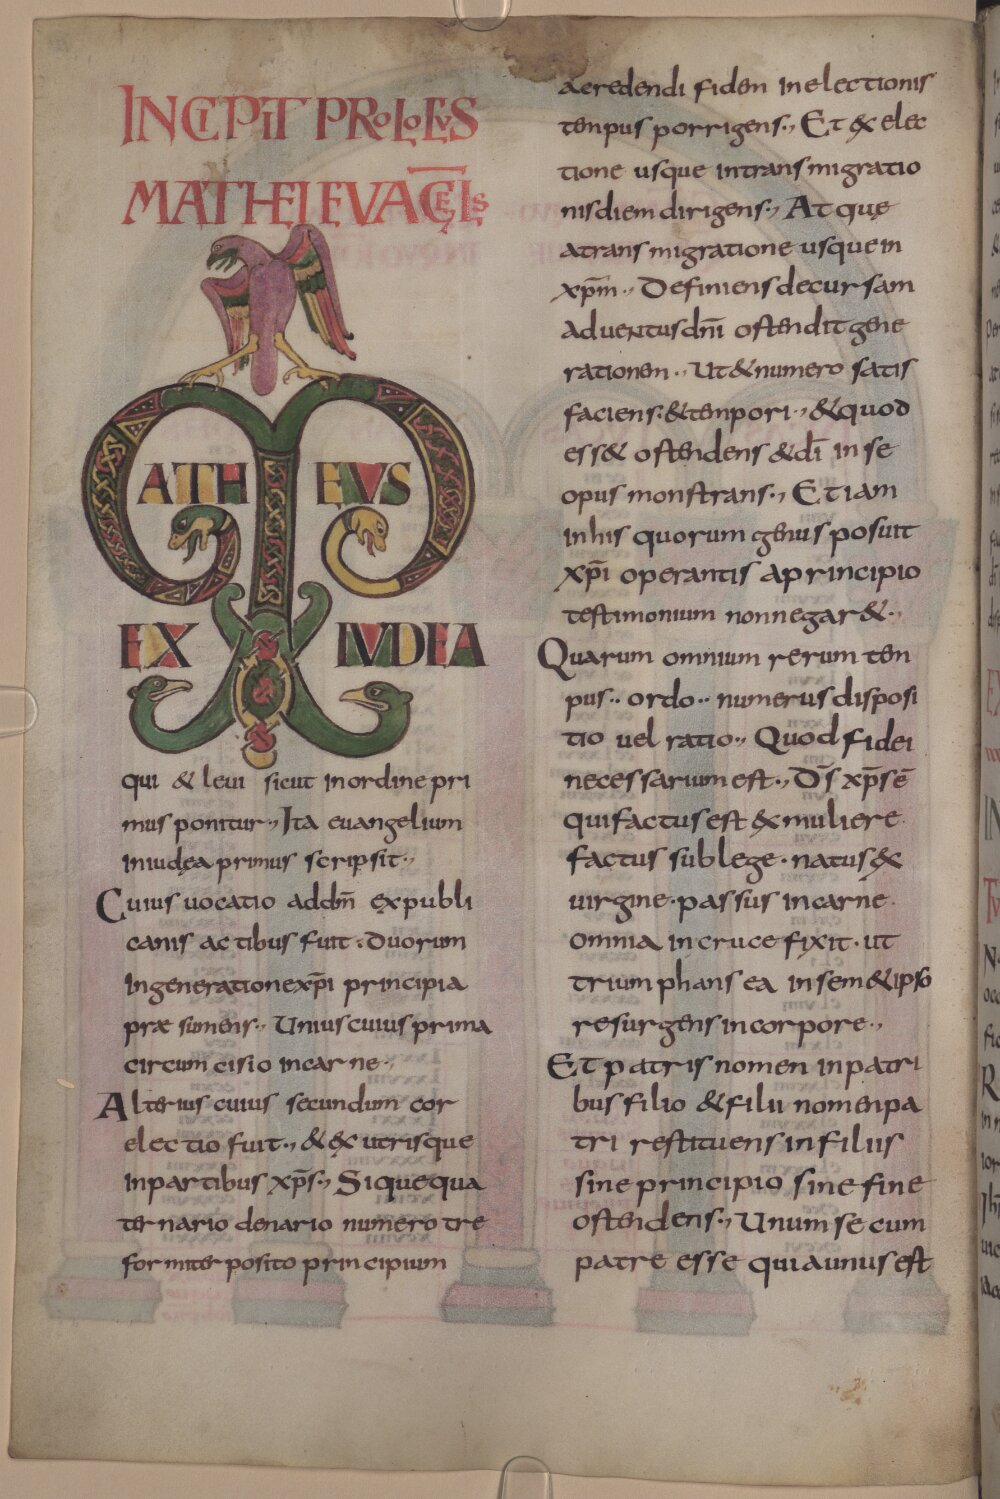 INCIPIT PROLOGVS
MATHEI EVANGELS
MATHEVS
EX IVDEA
qui & leui sicut inordine pri
mus ponitur., Ita euangelium
iniudęa primus scripsit.,
Cuius uocatio addm̄ expubli
canis actibus fuit. Duorum
ingenerationexp̄i principia
præsumens., Unius cuius prima
circumcisio incarne.,
Alterius cuius secundum cor
electio fuit., & ex utrisque
inpartibus xp̄s., Sicquequa
ternario denario numero tre
formiter posito principium
acredendi fidem inelectionis
tempus porrigens., Et ex elec
tione usque intransmigratio
nisdiem dirigens., Atque
atransmigratione usquein
xp̄m., Definiens decursam
aduentusdn̄i ostendit gene
rationem., Ut&numero satis
faciens.&tempori., &quod
ess& ostendens &dī in se
opus monstrans., Etiam
inhis quorum genus posuit
xp̄i operantis aprincipio
testimonium nonnegar&.,
Quarum omnium rerum tem
pus.. ordo.. numerus disposi
tio uel ratio., Quod fidei
necessarium est., Ds̄ xp̄sē
quifactusest exmuliere.
factus sublege. natusex
uirgine. passus incarne.
omnia incruce fixit. ut
triumphans ea insem&ipso
resurgens incorpore.,
Et patris nomen inpatri
bus filio &filii nomenpa
tri restituens infiliis
sine principio sine fine
ostendens., Unum se cum
patre esse quiaunusest